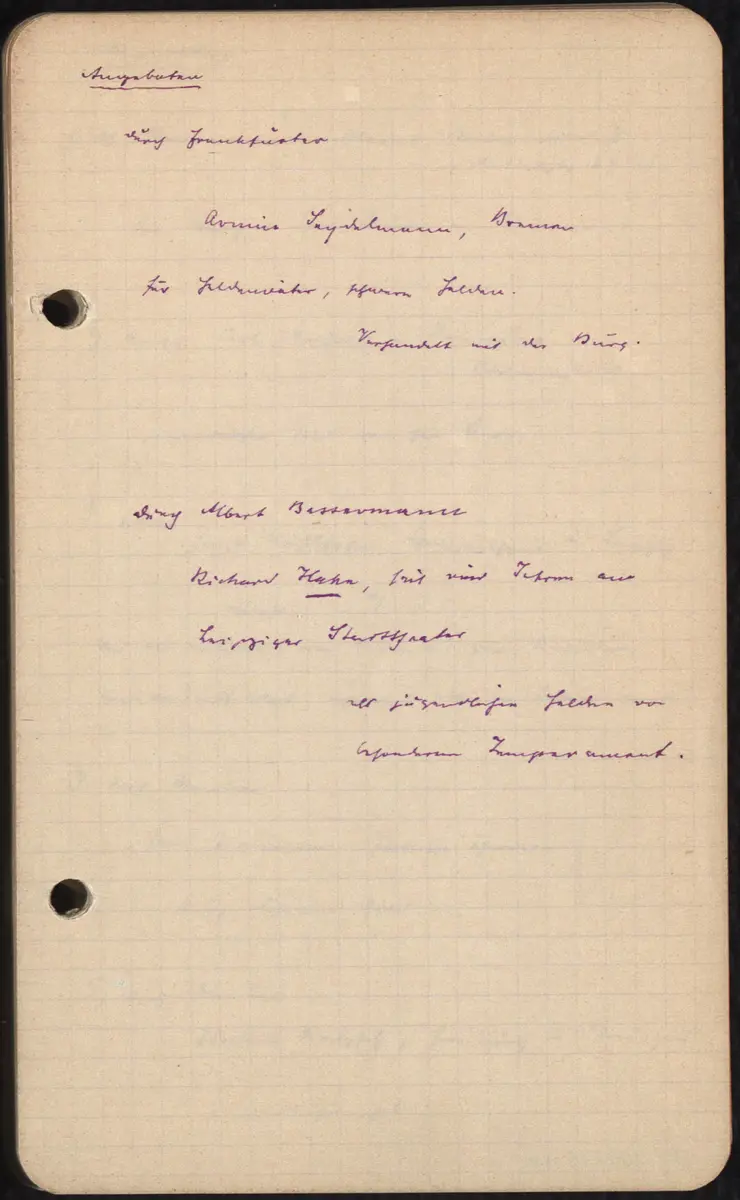 Angeboten
durch Frankfurter
Armin Seydelmann, Bremen
für Heldenväter, schwere Helden.
Verhandelt mit der Burg.
durch Albert Bassermann
Richard Hahn, seit vier Jahren am
Leipziger Stadttheater
als jugendlichen Helden von
besonderem Temperament.